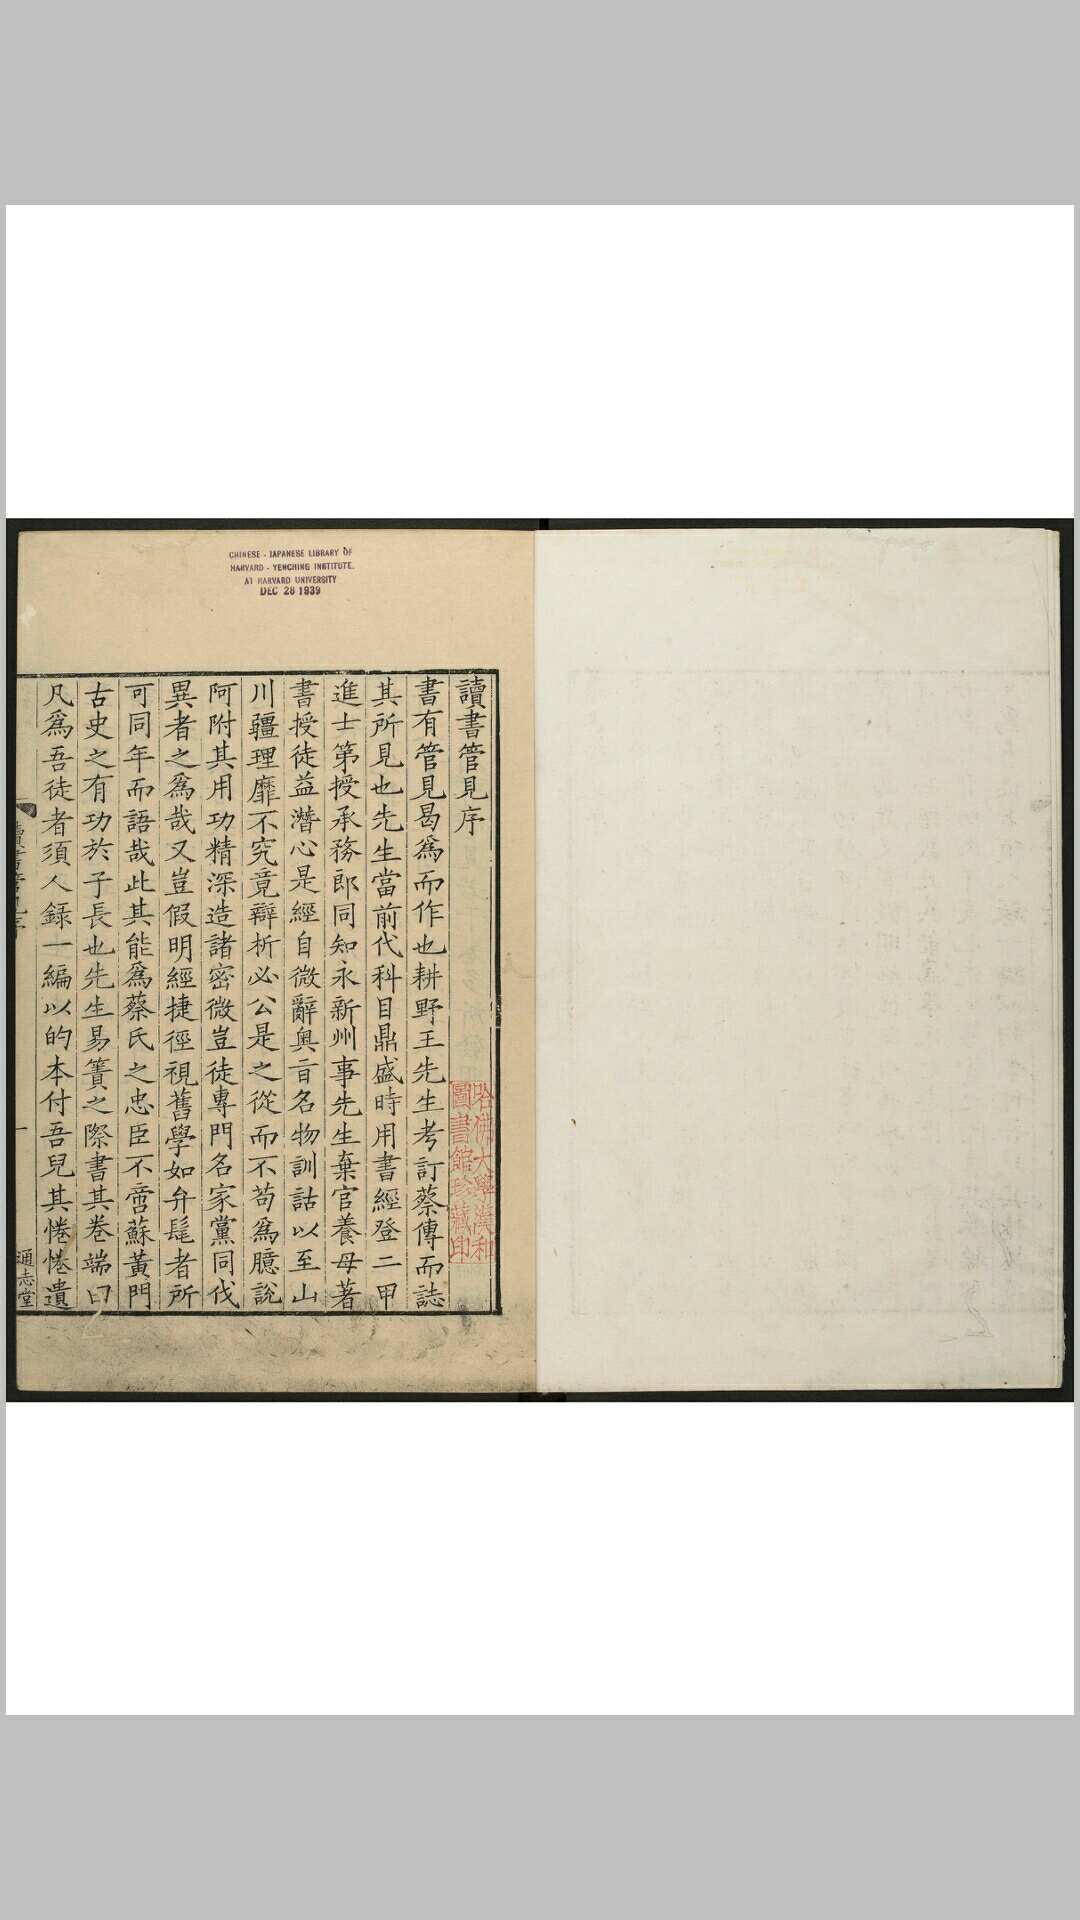 CHINESE - JAPANESE LIBRARY OF
HARVARD - YENCHING INSTITUTE.
AT HARVARD UNIVERSITY
DEC 28 1939
讀書管見序
哈佛大學漢和
圖書館珍藏印
書有管見曷爲而作也耕野王先生考訂蔡傳而誌
其所見也先生當前代科目鼎盛時用書經登二甲
進士第授承務郎同知永新州事先生棄官養母著
書授徒益潛心是經自微辭奧㫖名物訓詁以至山
川疆理靡不究竟辯析必公是之從而不苟爲臆說
阿附其用功精深造諸密微豈徒專門名家黨同伐
異者之爲哉又豈假明經捷徑視舊學如弁髦者所
可同年而語哉此其能爲蔡氏之忠臣不啻蘇黃門
古史之有功於子長也先生易簀之際書其卷端曰
凡爲吾徒者須人録一編以的本付吾兒其惓惓遺
讀書管見序
一
通志堂